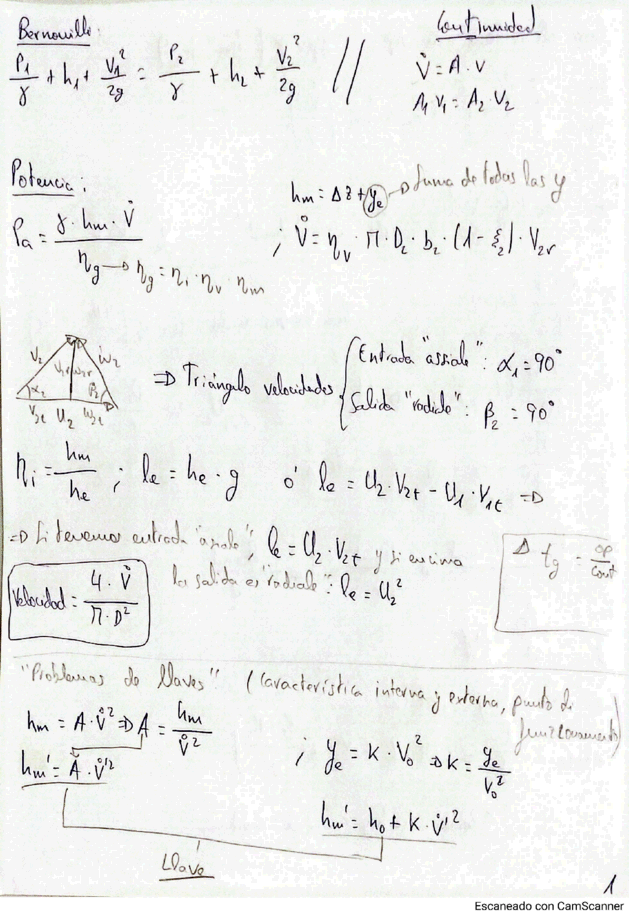 Bernouille:
P1/γ + h1 + V1²/2g = P2/γ + h2 + V2²/2g //
Continuidad
V̊ = A · v
A1 v1 = A2 · V2
Potencia:
Pa = γ · hm · V̊ / ηg
→ ηg = ηi · ηv · ηm
hm = Δz + ye → Suma de todas las y
; V̊ = ηv · π · D2 · b2 · (1 - ξ2) · V2r
V2 V2r W2r W2
α2 β2
V2t U2 W2t
⇒ Triángulo velocidades
Entrada "assiale": α1 = 90°
Salida "radiale": β2 = 90°
ηi = hm/he ; le = he · g ó le = U2 · V2t - U1 · V1t ⇒
⇒ Si tenemos entrada "assiale", le = U2 · V2t y si encima
la salida es "radiale": le = U2²
Velocidad = 4 · V̊ / π · D²
tg = op/cont
"Problemas de llaves" (Característica interna y externa, punto di funzionamento)
hm = A · V̊² ⇒ A = hm/V̊²
hm' = A · V̊'²
; ye = K · V0² ⇒ K = ye/V0²
hm' = h0 + K · V̊'²
Llave
1
Escaneado con CamScanner